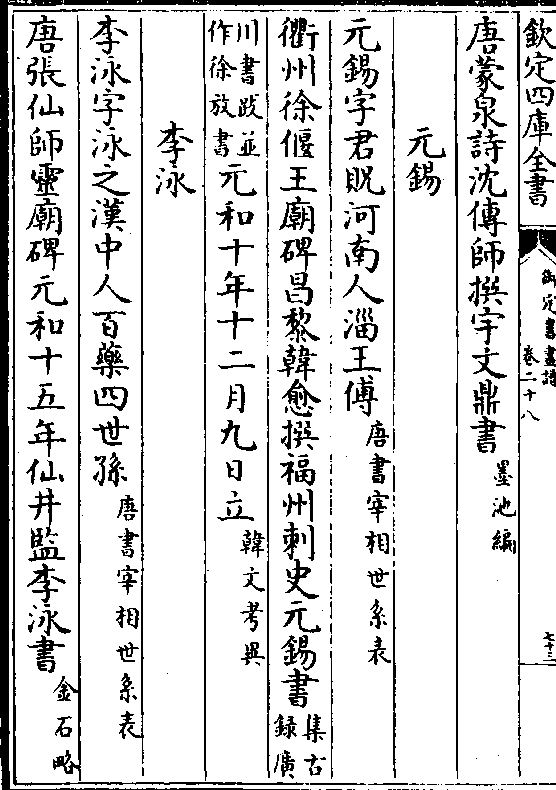 欽定四庫全書
御定書畫譜
卷二十八
七十三
唐蒙泉詩沈傳師撰宇文鼎書墨池編
元錫
元錫字君貺河南人淄王傅唐書宰相世系表
衢州徐偃王廟碑昌黎韓愈撰福州刺史元錫書集古錄廣
川書跋並作徐放書元和十年十二月九日立韓文考異
李泳
李泳字泳之漢中人百藥四世孫唐書宰相世系表
唐張仙師靈廟碑元和十五年仙井監李泳書金石略